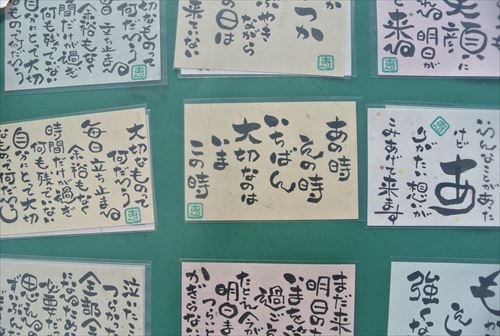 切なものって
何だろう
立ち止まる
余裕もなく
間だけが過ぎ
何も残ってい
分にとって大切
って何だろう
恵
か
つか
つぶやきながら
の日は
恵
笑顔に
明日が
て来る
恵
大切なものって
何だろう
毎日立ち止まる
余裕もなく
時間だけが過ぎ
何も残っていない
自分にとって大切
って何だろう
恵
あの時
その時
いちばん
大切なのは
いま
この時
恵
いろんなことがあった
けど
あ
りがたい想いが
こみあげて来ます
恵
泣いた
全部
必要
思え
まだ来
明日の
いまを
過ご
たとえ今が
つら
明日ま
かぎらな
も
強く